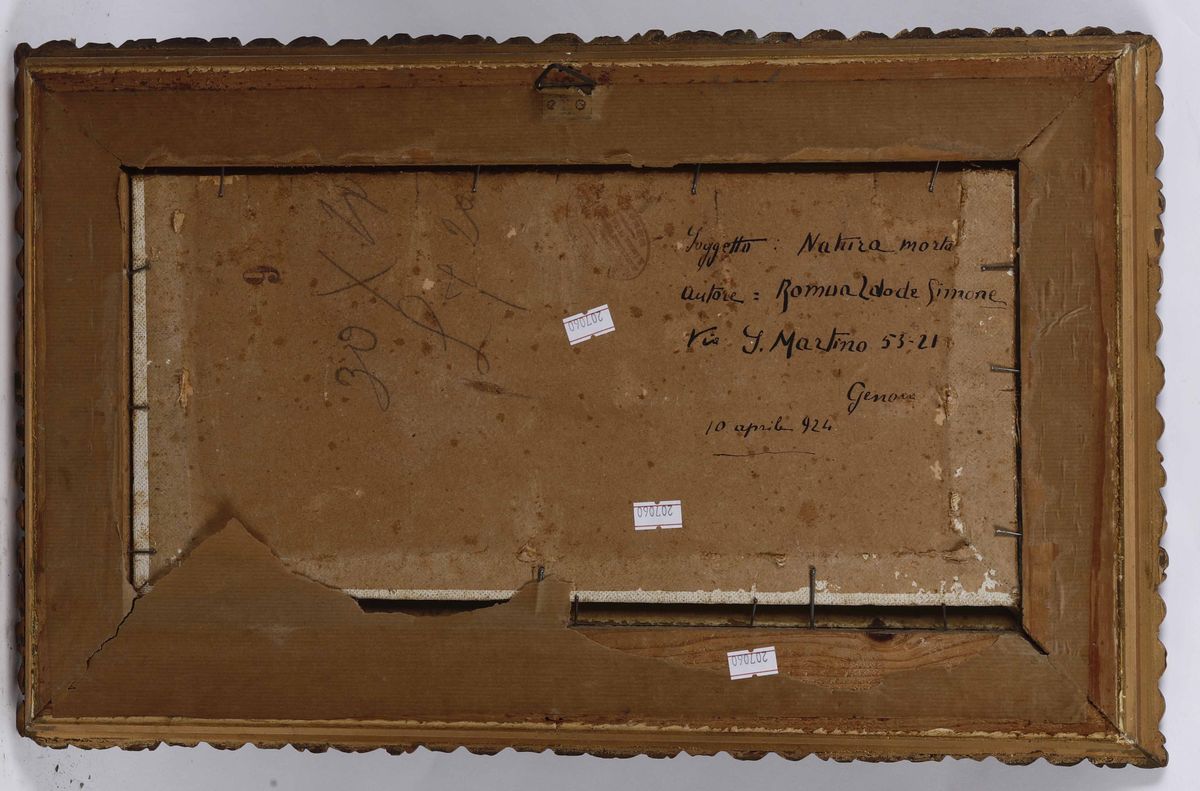 Soggetto : Natura morta
Autore : Romualdo de Simone
Via S. Martino 53-21
Genova
10 aprile 924
30 X
9
207060
207060
207060